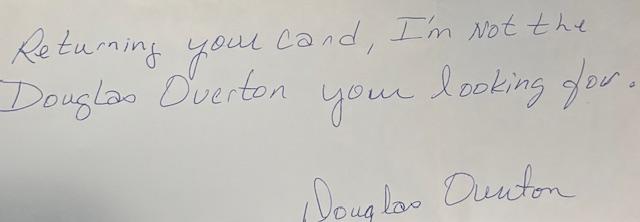 Returning your card, I'm not the
Douglas Overton your looking for.
Douglas Overton